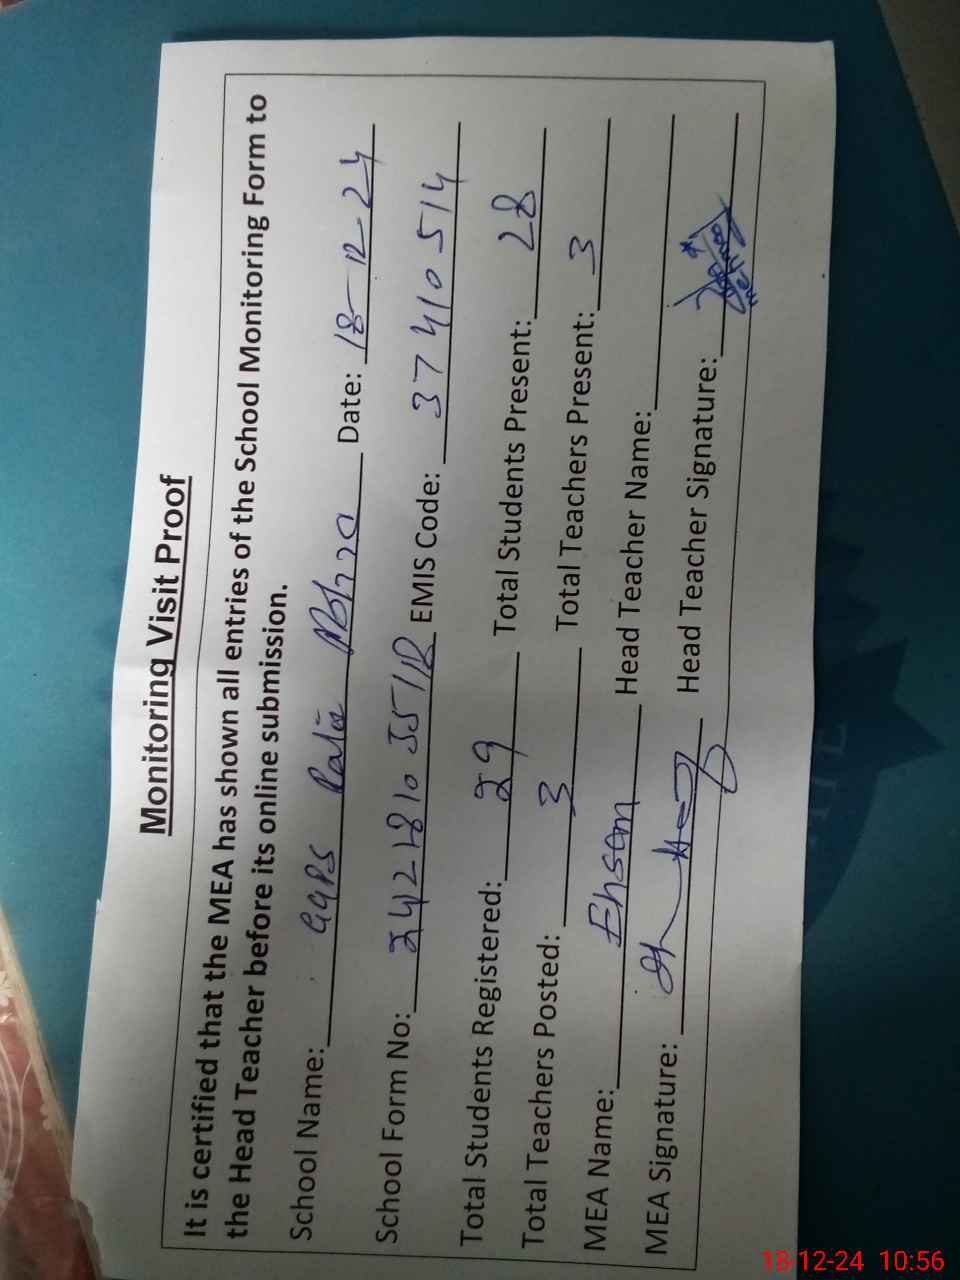 Monitoring Visit Proof
It is certified that the MEA has shown all entries of the School Monitoring Form to
the Head Teacher before its online submission.
School Name: GGPS Ratia Date: 18-12-24
School Form No: EMIS Code: 37410514
Total Students Registered: 29 Total Students Present: 28
Total Teachers Posted: 3 Total Teachers Present: 3
MEA Name: Ehsam Head Teacher Name:
MEA Signature: Head Teacher Signature:
18-12-24 10:56